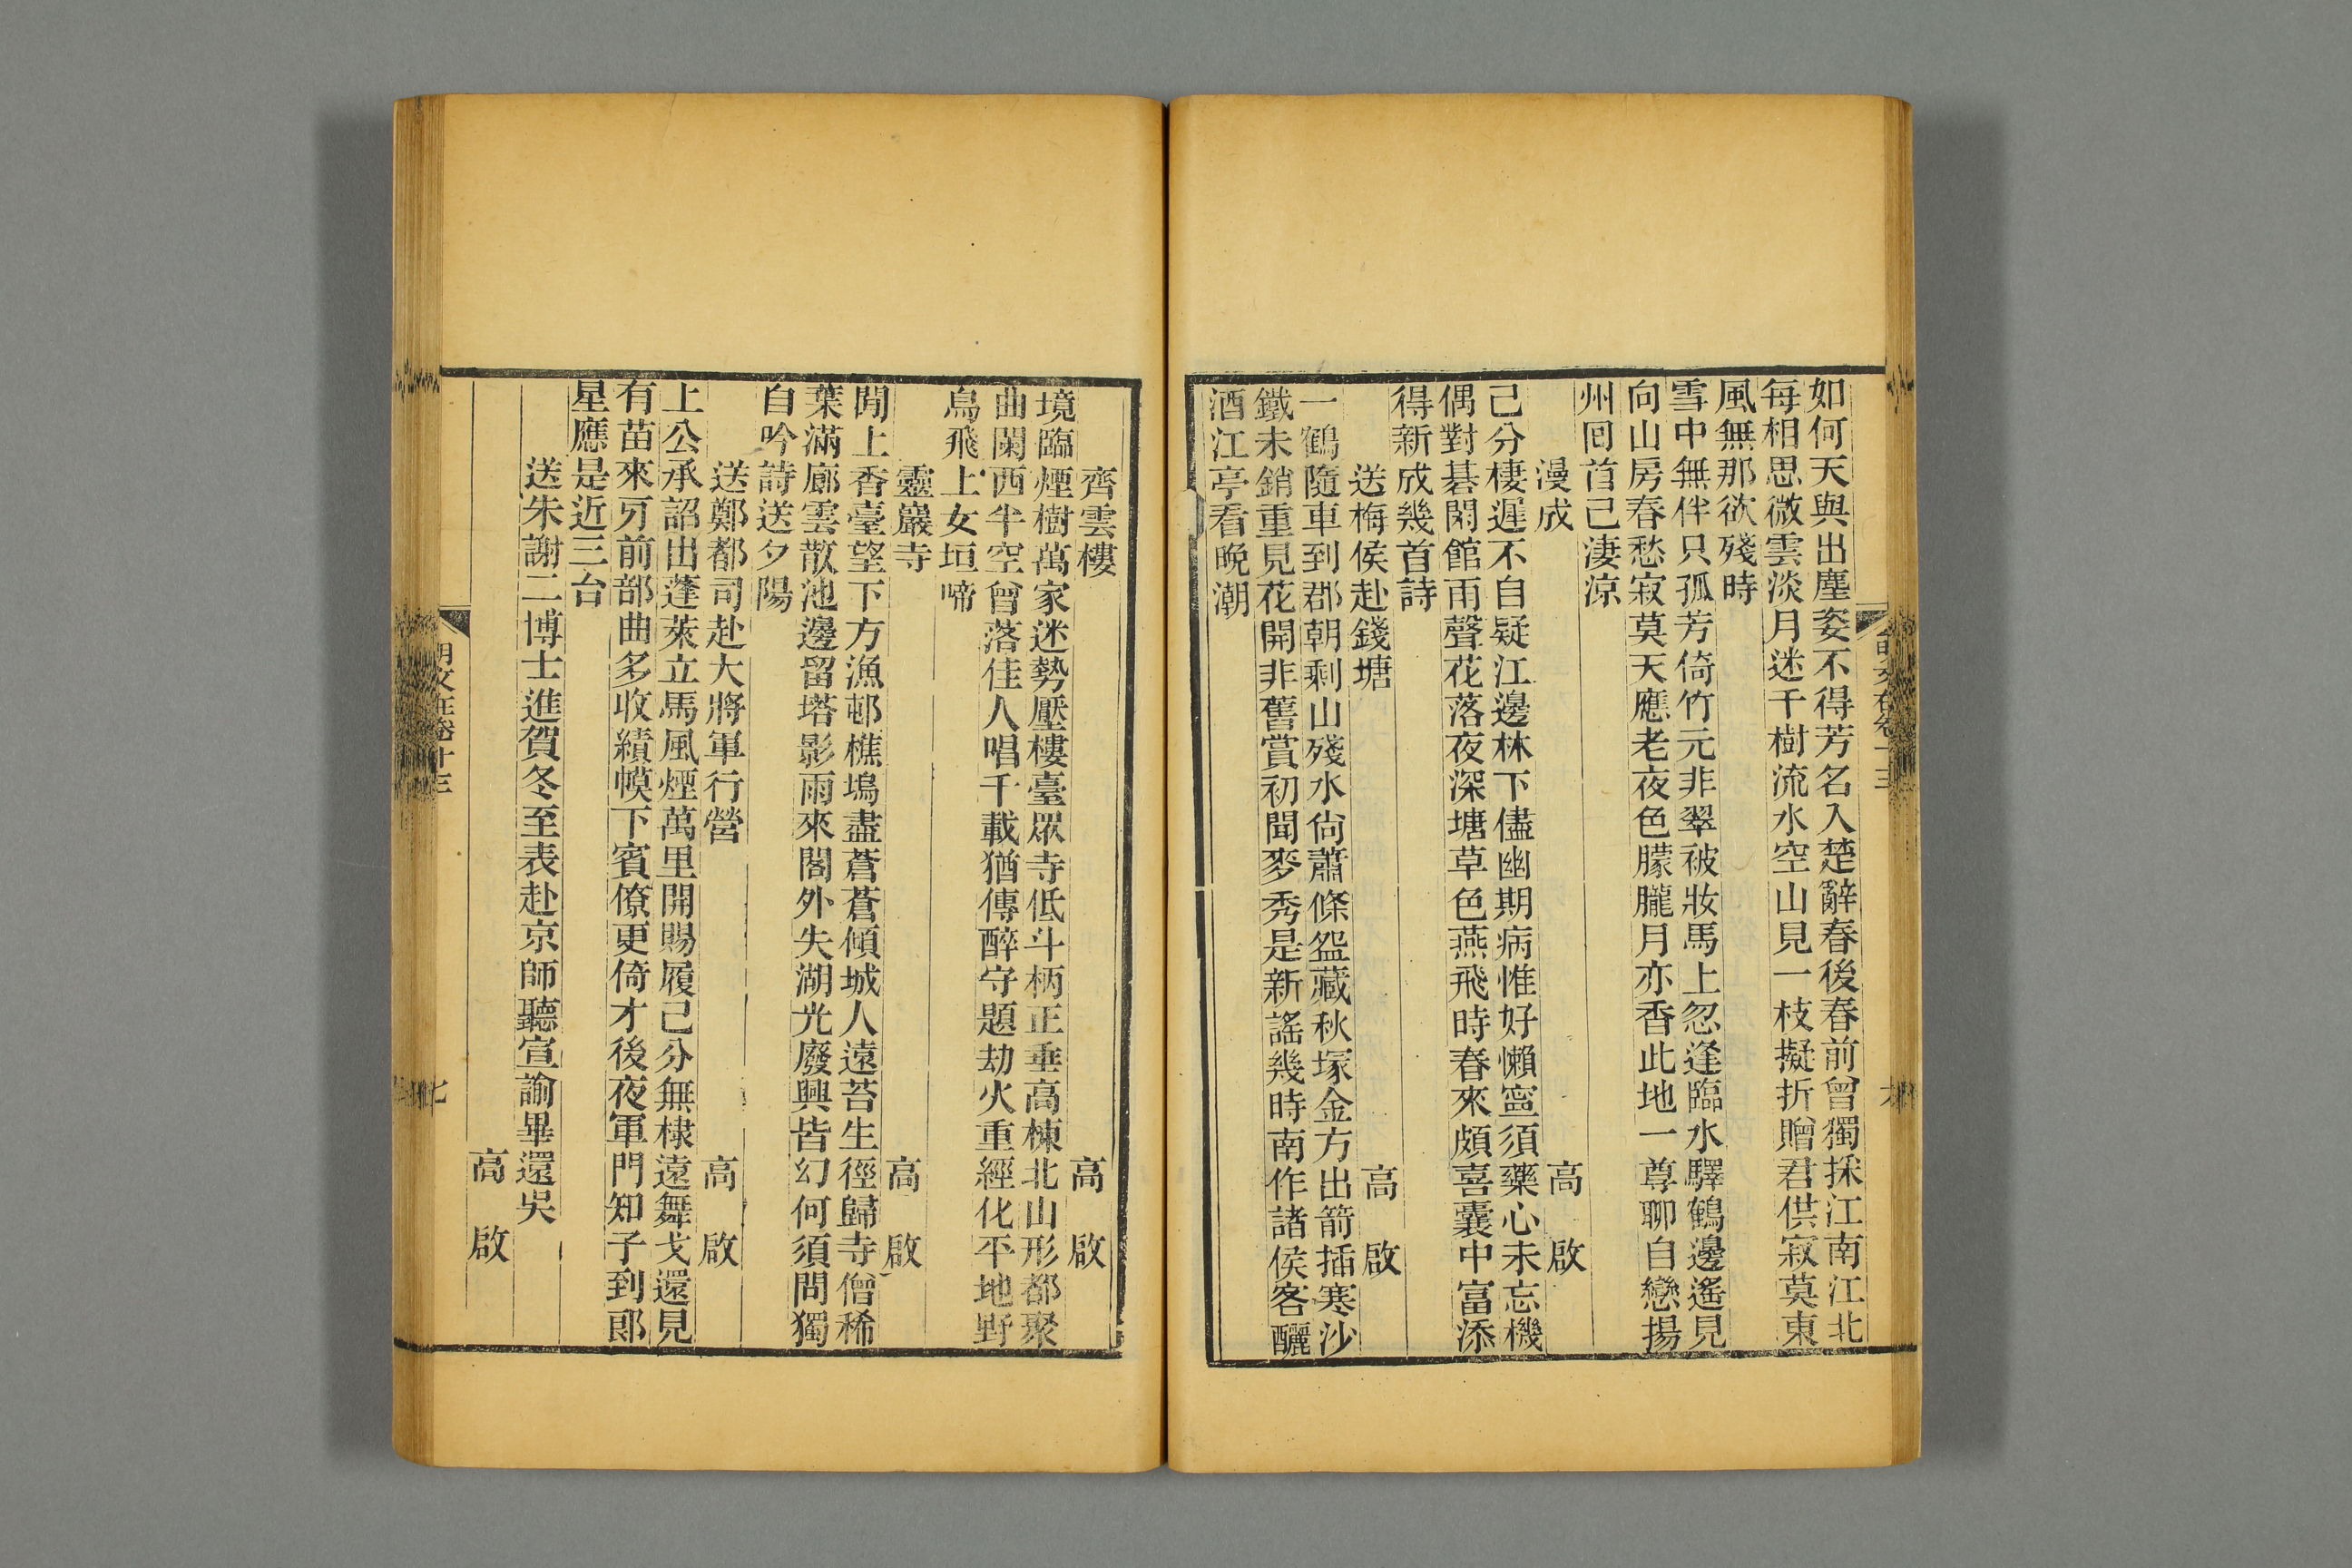 如何天與出塵姿不得芳名入楚辭春後春前曾獨採江南江北
每相思微雲淡月迷千樹流水空山見一枝擬折贈君供寂莫東
風無那欲殘時
雪中無伴只孤芳倚竹元非翠被妝馬上忽逢臨水驛鶴邊遙見
向山房春愁寂莫天應老夜色朦朧月亦香此地一尊聊自戀揚
州回首已淒涼
漫成 高啟
己分棲遲不自疑江邊林下儘幽期病惟好懶寧須藥心未忘機
偶對碁閑館雨聲花落夜深塘草色燕飛時春來頗喜囊中富添
得新成幾首詩
送梅侯赴錢塘 高啟
一鶴隨車到郡朝剩山殘水尙蕭條盌藏秋塚金方出箭插寒沙
鐵未銷重見花開非舊賞初聞麥秀是新謠幾時南作諸侯客釃
酒江亭看晚潮
齊雲樓 高啟
境臨煙樹萬家迷勢壓樓臺眾寺低斗柄正垂高棟北山形都聚
曲闌西半空曾落佳人唱千載猶傳醉守題劫火重經化平地野
烏飛上女垣啼
靈巖寺 高啟
閒上香臺望下方漁邨樵塢盡蒼蒼傾城人遠苔生徑歸寺僧稀
葉滿廊雲散池邊留塔影雨來閣外失湖光廢興皆幻何須問獨
自吟詩送夕陽
送鄭都司赴大將軍行營 高啟
上公承詔出蓬萊立馬風煙萬里開賜履已分無棣遠舞戈還見
有苗來牙前部曲多收績幙下賓僚更倚才後夜軍門知子到郎
星應是近三台
送朱謝二博士進賀冬至表赴京師聽宣諭畢還吳
高啟
明文在卷十三
七